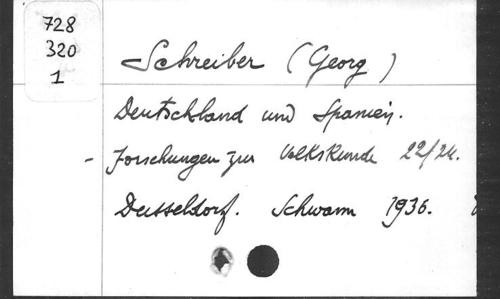 728
320
1
Schreiber (Georg)
Deutschland und Spanien.
- Forschungen zur Volkskunde 22/24.
Dusseldorf. Schwann 1936.